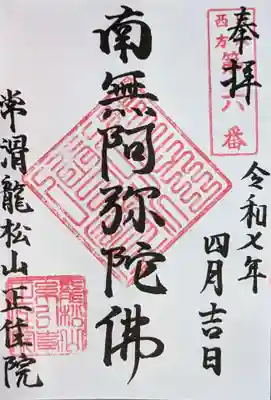 奉拝
西方第六番
令和七年
四月吉日
南無阿弥陀佛
常滑龍松山正住院